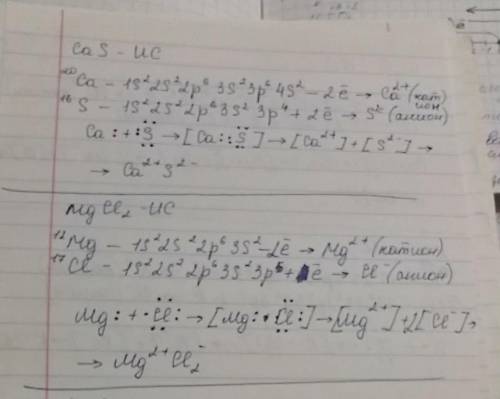 CaS - ИС
²⁰Ca - 1S²2S²2p⁶ 3S²3p⁶ 4S² - 2ē → Ca²⁺ (катион)
¹⁶S - 1S²2S²2p⁶3S² 3p⁴ + 2ē → S²⁻ (анион)
Ca : + :S̈ → [Ca : S̈ :] → [Ca²⁺] + [S²⁻] →
→ Ca²⁺S²⁻
MgCl₂ - ИС
¹²Mg - 1S²2S²2p⁶3S² - 2ē → Mg²⁺ (катион)
¹⁷Cl - 1S²2S²2p⁶3S²3p⁵ + 1ē → Cl⁻ (анион)
Mg : + ·C̈l : → [Mg : · C̈l :] → [Mg²⁺] + 2[Cl⁻] →
→ Mg²⁺Cl₂⁻